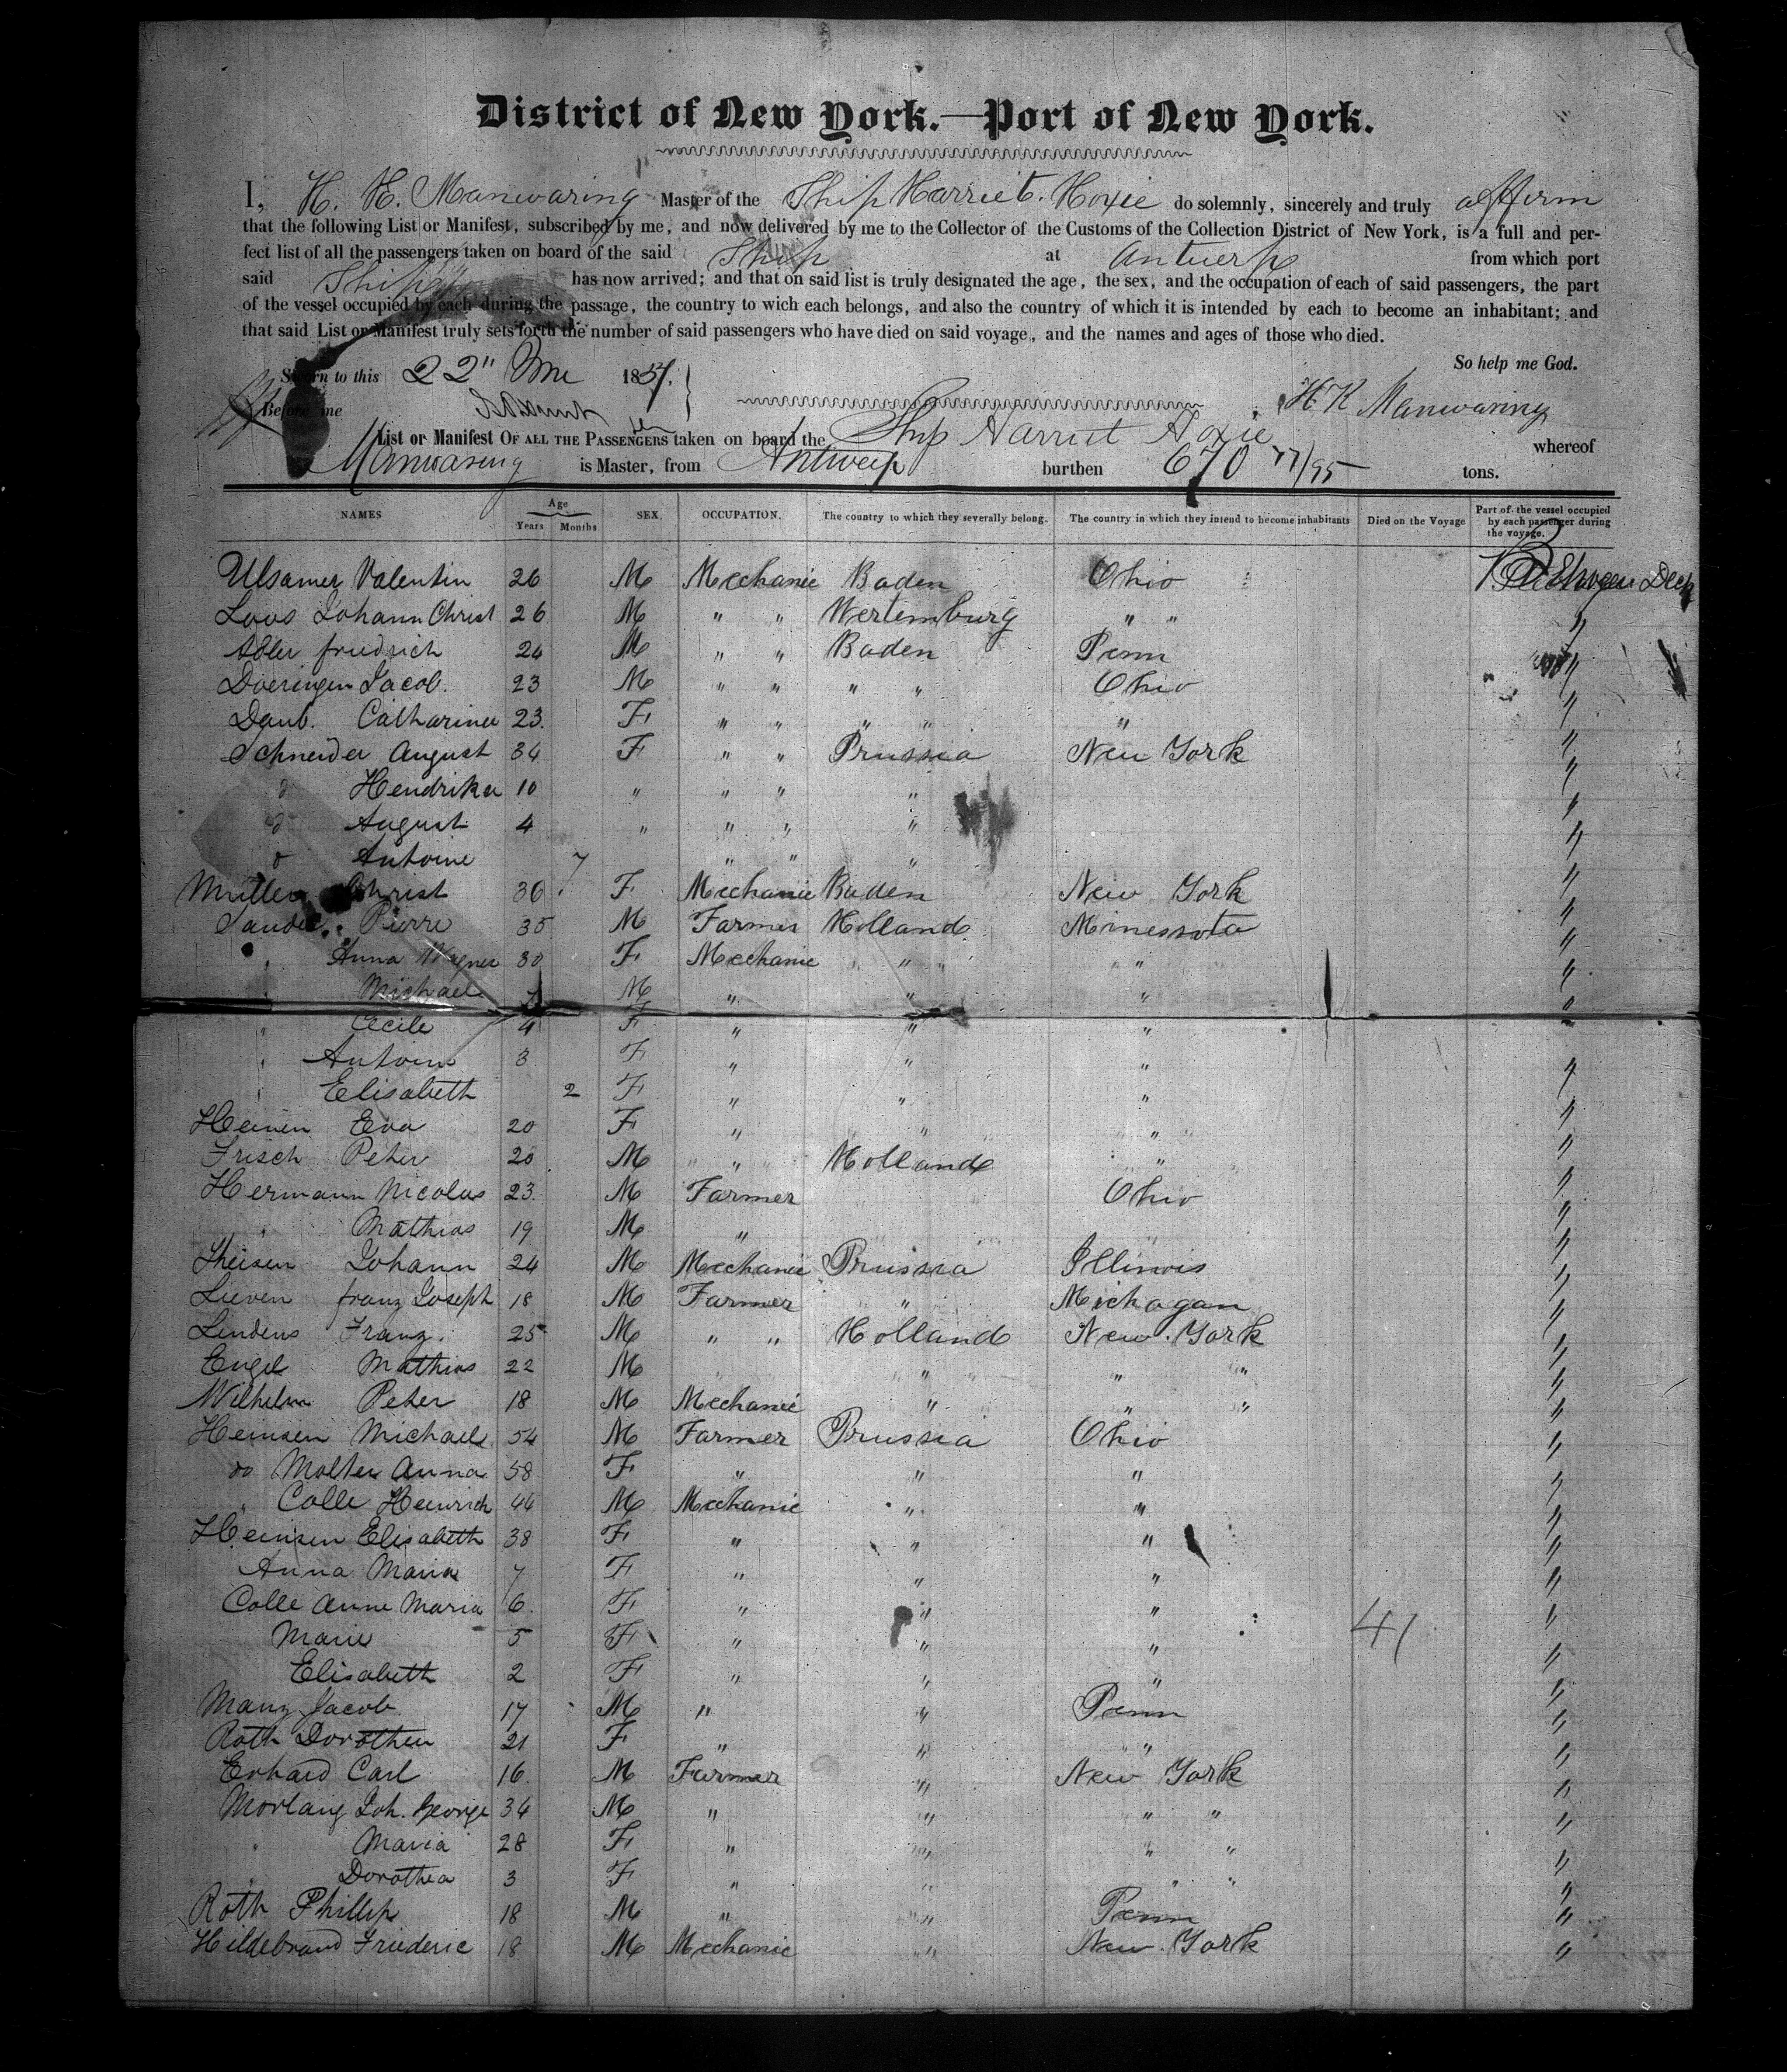 District of New York.—Port of New York.
I, H. K. Manwaring Master of the Ship Harriet. Hoxie do solemnly, sincerely and truly affirm
that the following List or Manifest, subscribed by me, and now delivered by me to the Collector of the Customs of the Collection District of New York, is a full and per-
fect list of all the passengers taken on board of the said Ship at Antwerp from which port
said Ship has now arrived; and that on said list is truly designated the age, the sex, and the occupation of each of said passengers, the part
of the vessel occupied by each during the passage, the country to wich each belongs, and also the country of which it is intended by each to become an inhabitant; and
that said List or Manifest truly sets forth the number of said passengers who have died on said voyage, and the names and ages of those who died.
So help me God.
Sworn to this 22" 1857.
Before me H K Manwaring
List or Manifest OF ALL THE PASSENGERS taken on board the Ship Harriet Hoxie whereof
Manwaring is Master, from Antwerp burthen 670 77/95 tons.
NAMES Age Years Months SEX. OCCUPATION. The country to which they severally belong. The country in which they intend to become inhabitants Died on the Voyage Part of the vessel occupied by each passenger during the voyage.
Ulsamer Valentin 26 M Mechanic Baden Ohio Between Deck
Loos Johann Christ 26 M " " Wertemburg " " "
Adler friedrich 24 M " " Baden Penn "
Doeringen Jacob. 23 M " " " " Ohio "
Daub. Catharina 23. F " " " " " "
Schneider August 34 F " " Prussia New York "
d Hendrika 10 " " " " "
d August 4 " " " " "
d Antoine 7 " " " "
Muller Christ 36 F Mechanic Baden New York "
Sander Pierre 35 M Farmer Holland Minessota "
" Anna Wagner 30 F Mechanic " " " "
" Michael 7 M " " " "
" Cecile 4 F " " " "
" Antoine 3 F " " " "
" Elisabeth 2 F " " " "
Heinen Eva 20 F " " " "
Frisch Peter 20 M " Holland " "
Hermann Nicolas 23. M Farmer Ohio "
" Mathias 19 M " " "
Theisen Johann 24 M Mechanic Prussia Illinois "
Lieven franz Joseph 18 M Farmer " Michagan "
Lindens Franz. 25 M " " Holland New York "
Engel Mathias 22 M " " " "
Wilhelm Peter 18 M Mechanic " " " "
Heinsen Michael 54 M Farmer Prussia Ohio "
do Molter Anna 58 F " " " "
" Colle Heinrich 44 M Mechanic " " "
Heinsen Elisabeth 38 F " " " "
Anna Maria 7 F " " " "
Colle Anne Maria 6. F " " " "
Marie 5 F " " " 41 "
Elisabeth 2 F " " " "
Manz Jacob. 17 M " " Penn "
Roth Dorothea 21 F " " " "
Erhard Carl 16. M Farmer " New York "
Morlang Joh. George 34 M " " " " "
" Maria 28 F " " " " "
" Dorothea 3 F " " " " "
Roth Phillip 18 M " " Penn "
Hildebrand Friederic 18 M Mechanic " New York "